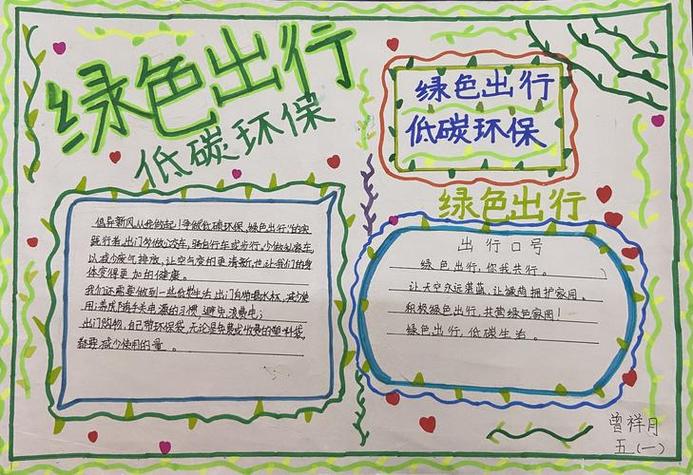 绿色出行
低碳环保
绿色出行
低碳环保
绿色出行
倡导新风,从我做起!争做低碳环保,绿色出行"的实
践行者,出门多做公交车,骑自行车或步行,少做私家车,
以减少废气排放,让空气变的更清新,也让我们的身
体变得更加的健康。
我们还需要做到一些自然生活,出门自带喝水杯,减少使
用;养成随手关电源的习惯,避免浪费电;
出门购物,自己带环保袋,无论是免费或收费的塑料袋,
都要减少使用的量。
出行口号
绿色出行,你我共行。
让天空永远湛蓝,让城南拥护家园。
积极绿色出行,共营绿色家园!
绿色出行,低碳生活。
曾祥月
五(一)